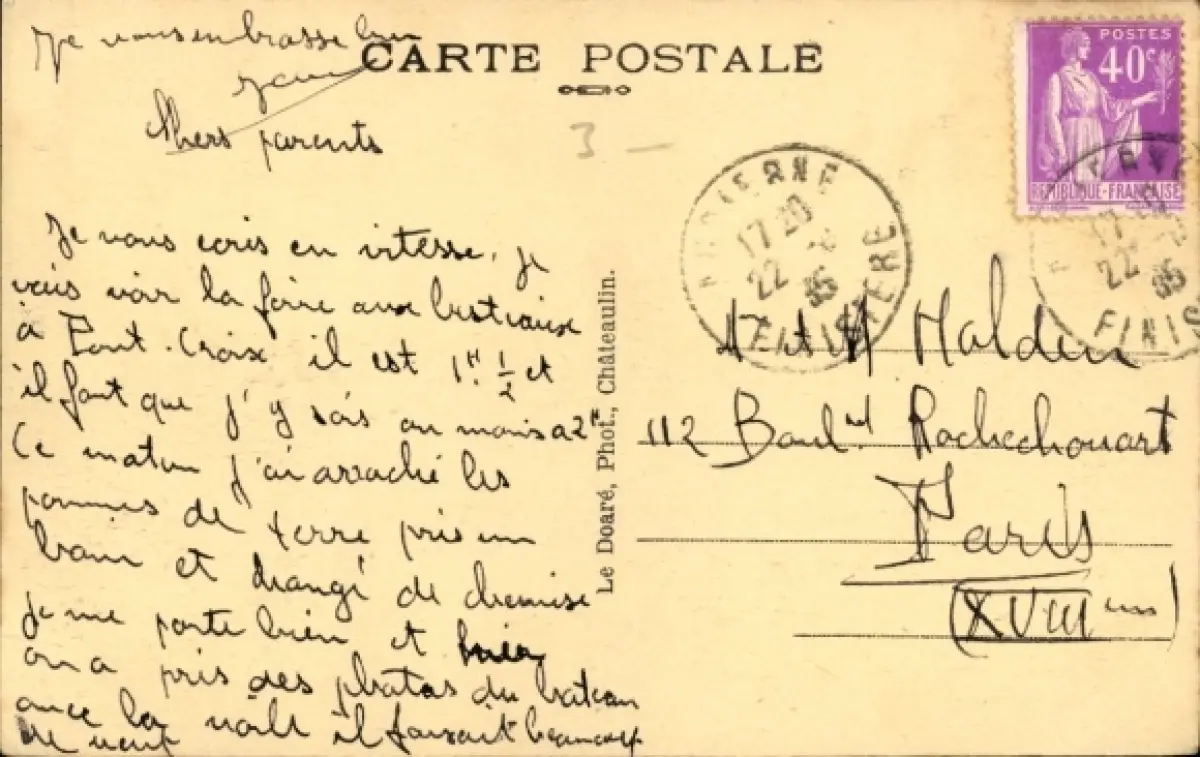 Je vous embrasse bien
CARTE POSTALE
Chers parents
3 -
POSTES
40c
REPUBLIQUE-FRANÇAISE
AUDIERNE
17 20
22 35
FINISTERE
17 20
22 35
FINIS
Je vous ecris en vitesse, je
vais voir la foire aux bestiaux
à Pont-Croix il est 1H 1/2 et
il faut que j'y sois au moins a 2H
Ce matin j'ai arraché les
pommes de terre pris un
bain et changé de chemise
je me porte bien et hier
on a pris des photos du bateau
avec la voile il faisait beaucoup
de vent
Le Doaré, Phot., Châteaulin.
Mr et M Malden
112 Boulvd Rochechouart
Paris
(XVIII em)